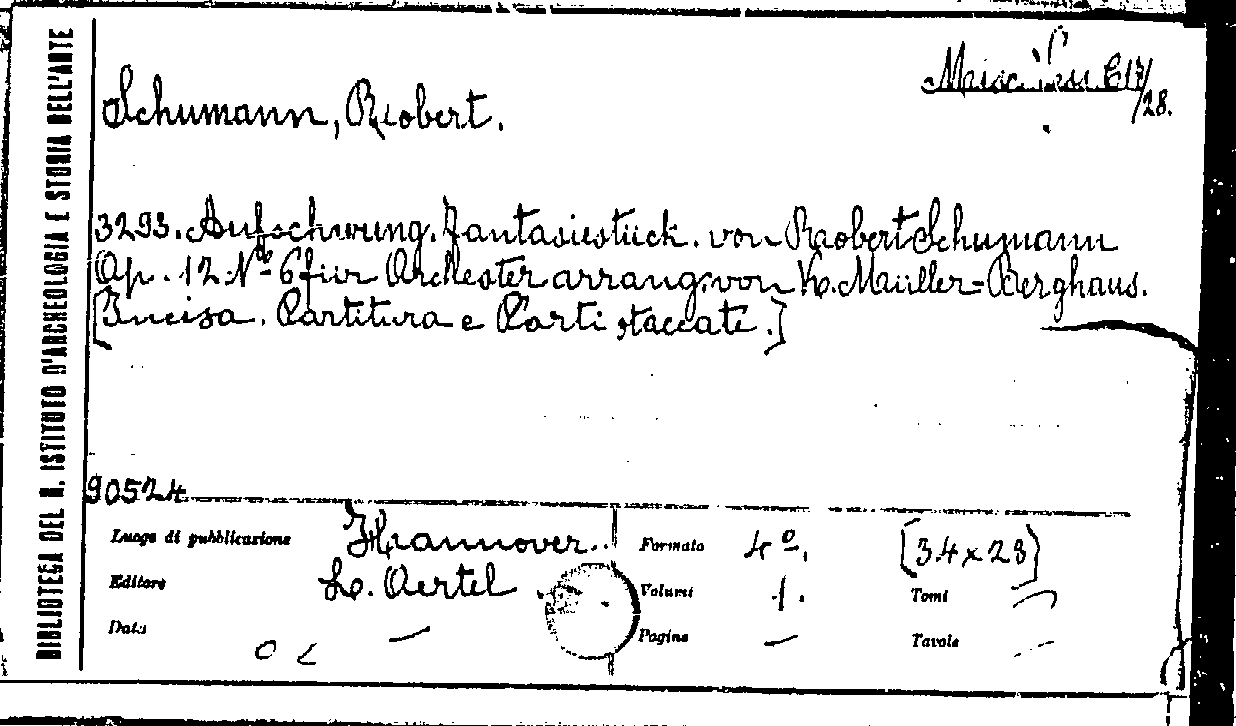 BIBLIOTECA DEL R. ISTITUTO D'ARCHEOLOGIA E STORIA DELL'ARTE
28.
Schumann, Robert.
3293. Aufschwung. Fantasiestück. von Robert Schumann
Op. 12. No 6 für Orchester arrang. von K. Müller-Berghaus.
[Incisa. Partitura e Parti staccate.]
90524
Luogo di pubblicazione Hannover.. Formato 4º. [34x28]
Editore L. Oertel. Volumi 1. Tomi —
Data — Pagine — Tavole —